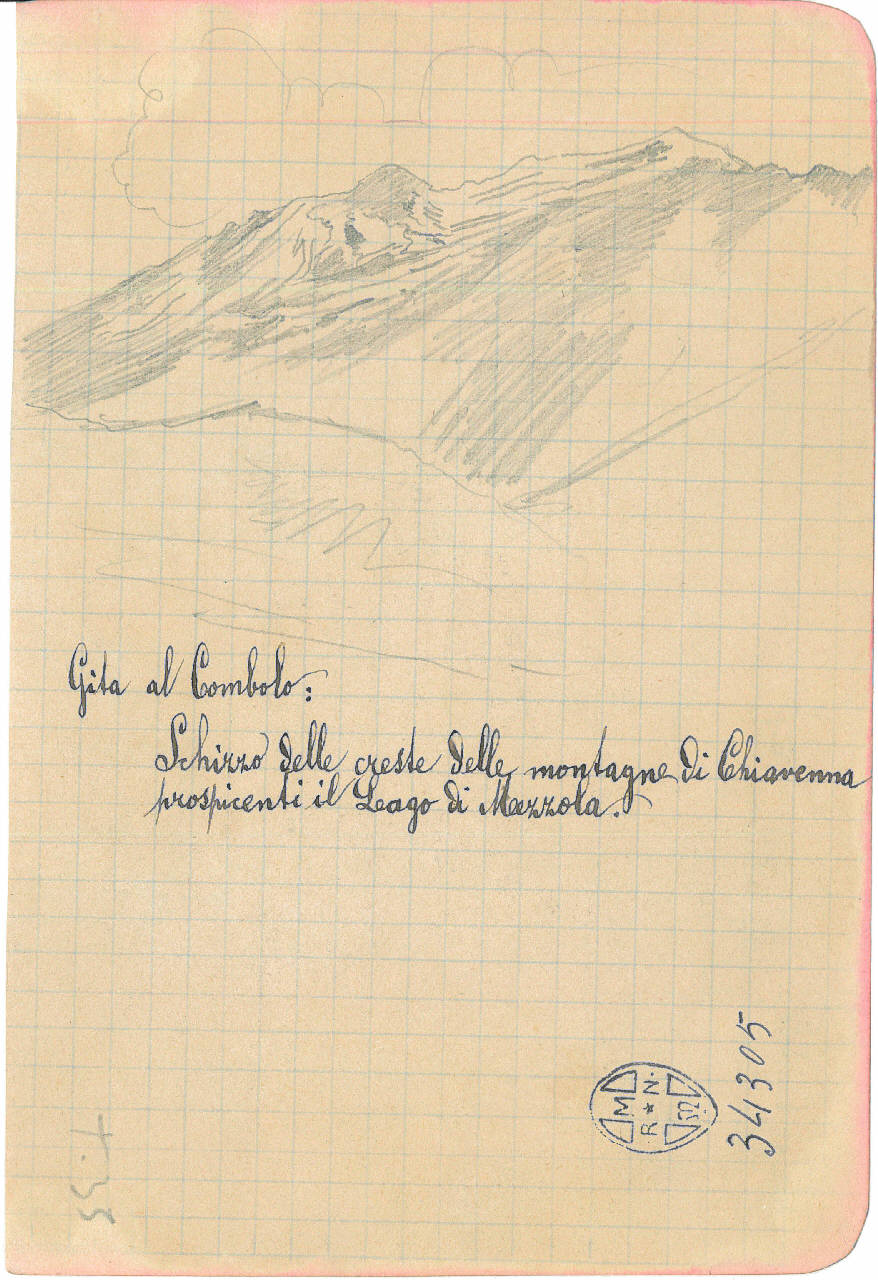 Gita al Combolo:
Schizzo delle creste delle montagne di Chiavenna
prospicenti il Lago di Mezzola.
M
R * N.
34305